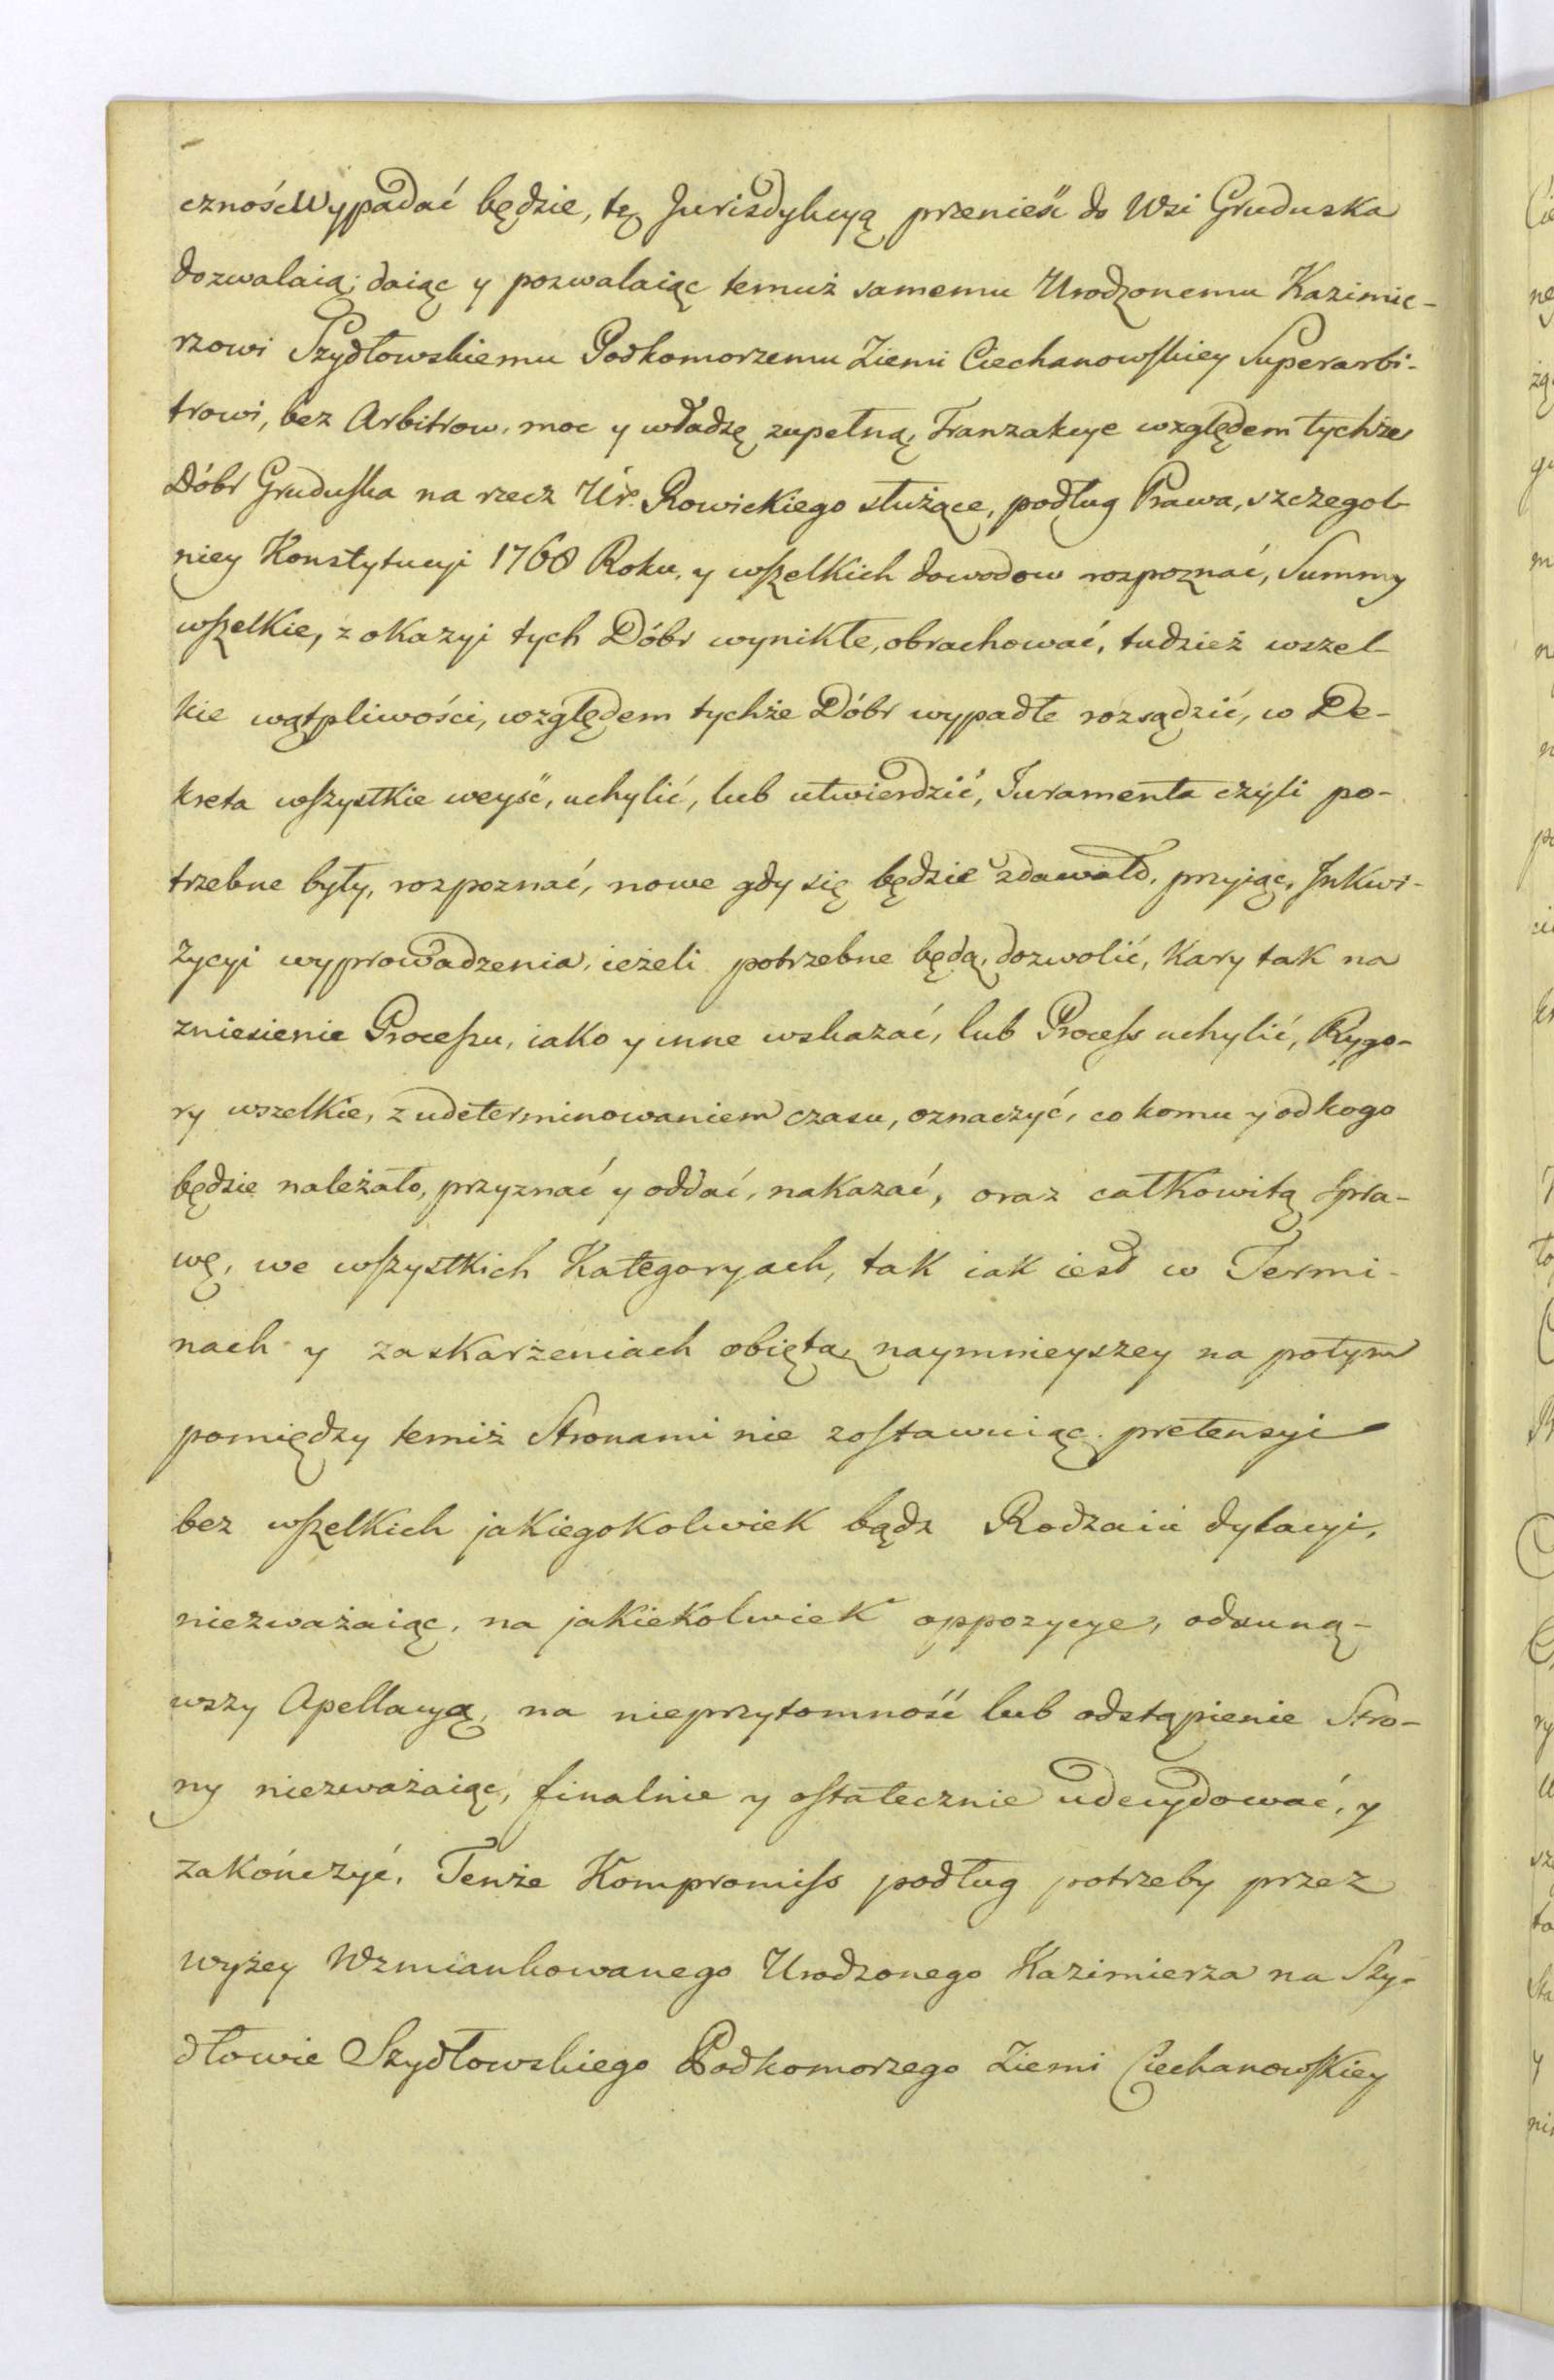 czność Wypadać będzie, tę Jurisdykcyą przenieść do Wsi Gruduska
dozwalaią; daiąc y pozwalaiąc temuż samemu Urodzonemu Kazimie-
rzowi Szydłowskiemu Podkomorzemu Ziemi Ciechanowskiey Superarbi-
trowi, bez Arbitrow, moc y władzę zupełną, Tranzakcye względem tychże
Dóbr Gruduska na rzecz Ur. Rowickiego służące, podług Prawa, szczegol-
niey Konstytucyi 1768 Roku, y wszelkich dowodow rozpoznać, Summy
wszelkie, z okazyi tych Dóbr wynikłe, obrachować, tudzież wszel-
kie wątpliwości, względem tychże Dóbr wypadłe rozsądzić, w De-
kreta wszystkie weyść, uchylić, lub utwierdzić, Juramenta czyli po-
trzebne były, rozpoznać, nowe gdy się będzie zdawało, przyjąc, Inkwi-
zycyi wyprowadzenia, ieżeli potrzebne będą, dozwolić, Kary tak na
zniesienie Processu, iako y inne wskazać, lub Process uchylić, Rygo-
ry wszelkie, z udeterminowaniem czasu, oznaczyć, co komu y od kogo
będzie należało, przyznać y oddać, nakazać, oraz całkowitą spra-
wę, we wszystkich Kategoryach, tak iak iest w Termi-
nach y zaskarżeniach obiętą, naymnieyszey na potym
pomiędzy temiż Stronami nie zostawuiąc pretensyi
bez wszelkich jakiegokolwiek bądz Rodzaiu dylacyi,
niezważaiąc, na jakiekolwiek oppozycye, odsuną-
wszy Apellacyą, na nieprzytomność lub odstąpienie Stro-
ny niezważaiąc, finalnie y ostatecznie udecydować, y
zakończyć. Tenże Kompromiss podług potrzeby przez
wyżey Wzmiankowanego Urodzonego Kazimierza na Szy-
dłowie Szydłowskiego Podkomorzego Ziemi Ciechanowskiey